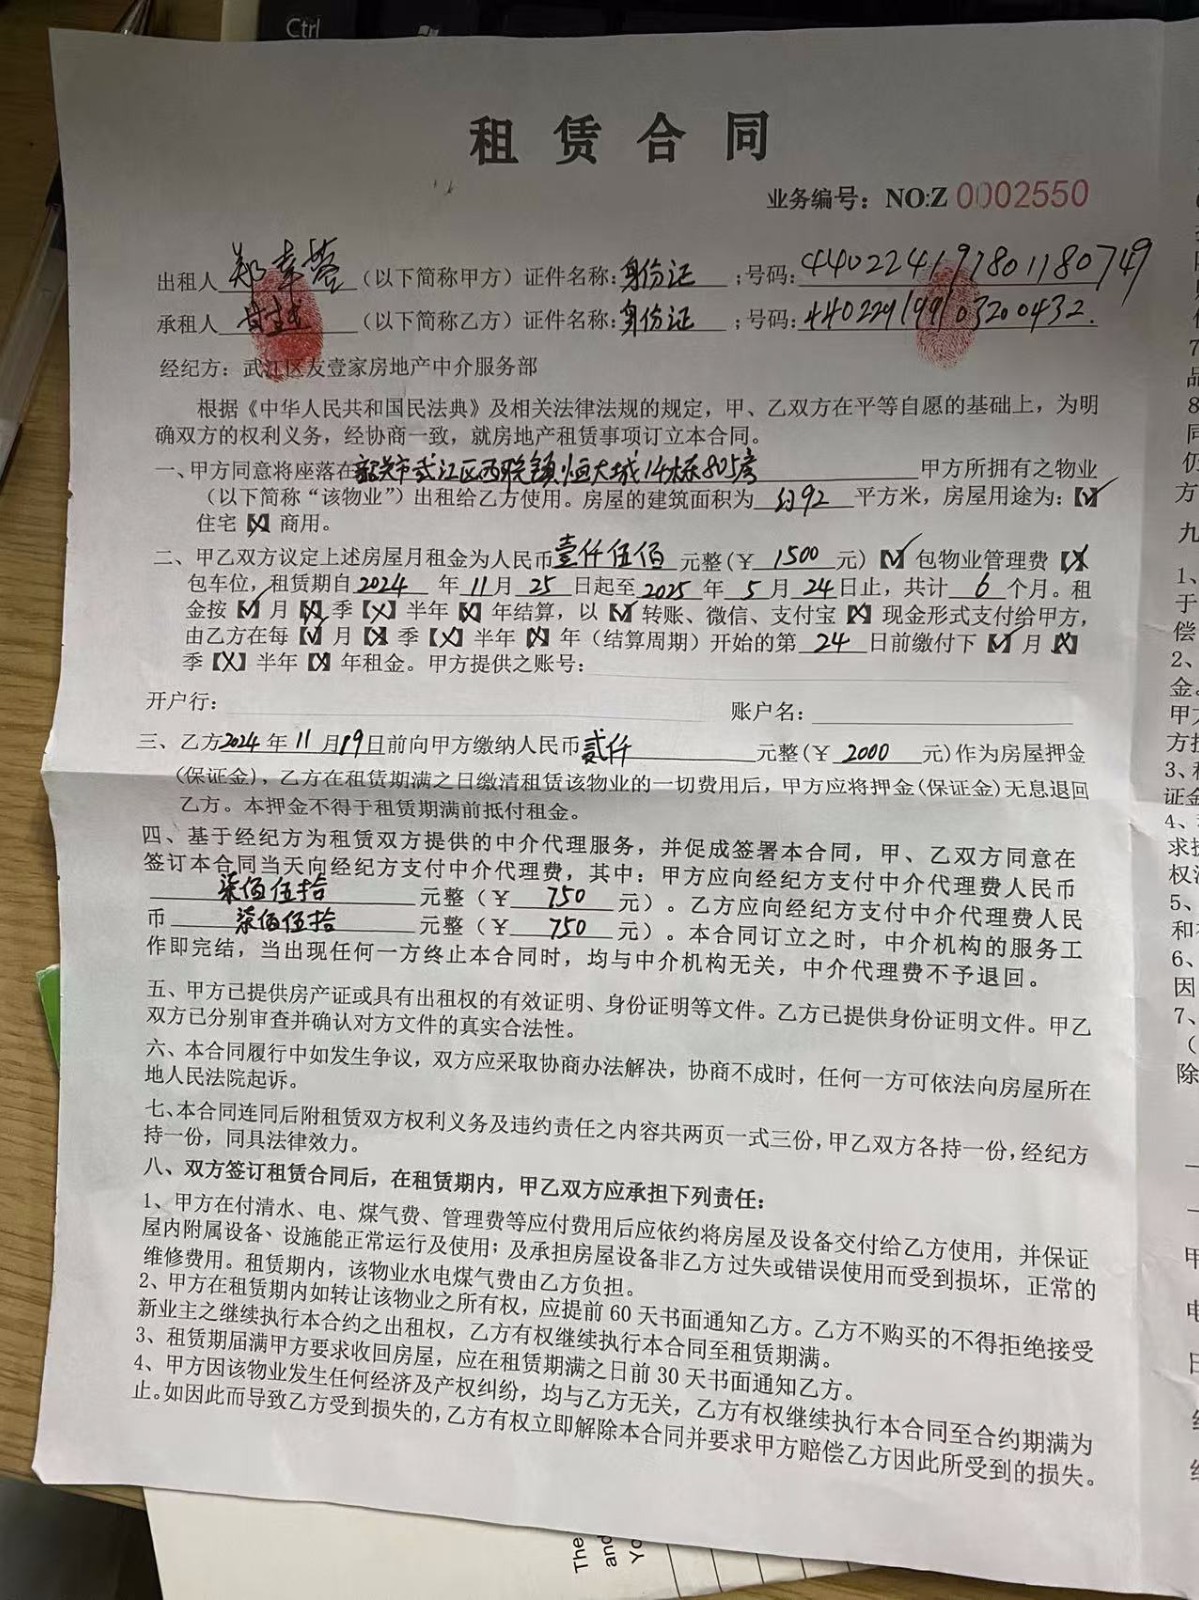 Ctrl
租赁合同
业务编号：NO:Z 0002550
出租人 郑幸蓉 （以下简称甲方）证件名称：身份证 ；号码：440224197801180749
承租人 甘 （以下简称乙方）证件名称：身份证 ；号码：440229199103200432.
经纪方：武江区友壹家房地产中介服务部
根据《中华人民共和国民法典》及相关法律法规的规定，甲、乙双方在平等自愿的基础上，为明
确双方的权利义务，经协商一致，就房地产租赁事项订立本合同。
一、甲方同意将座落在韶关市武江区西联镇恒大城14栋805房 甲方所拥有之物业
（以下简称“该物业”）出租给乙方使用。房屋的建筑面积为 约92 平方米，房屋用途为：【✓】
住宅【X】商用。
二、甲乙双方议定上述房屋月租金为人民币壹仟伍佰 元整（¥ 1500 元）【✓】包物业管理费【X】
包车位，租赁期自2024 年 11 月 25 日起至 2025 年 5 月 24日止，共计 6 个月。租
金按【✓】月【X】季【X】半年【X】年结算，以【✓】转账、微信、支付宝【X】现金形式支付给甲方，
由乙方在每【✓】月【X】季【X】半年【X】年（结算周期）开始的第 24 日前缴付下【✓】月【X】
季【X】半年【X】年租金。甲方提供之账号：
开户行： 账户名：
三、乙方2024 年 11 月19日前向甲方缴纳人民币贰仟 元整（¥ 2000 元）作为房屋押金
（保证金），乙方在租赁期满之日缴清租赁该物业的一切费用后，甲方应将押金（保证金）无息退回
乙方。本押金不得于租赁期满前抵付租金。
四、基于经纪方为租赁双方提供的中介代理服务，并促成签署本合同，甲、乙双方同意在
签订本合同当天向经纪方支付中介代理费，其中：甲方应向经纪方支付中介代理费人民币
柒佰伍拾 元整（¥ 750 元）。乙方应向经纪方支付中介代理费人民
币 柒佰伍拾 元整（¥ 750 元）。本合同订立之时，中介机构的服务工
作即完结，当出现任何一方终止本合同时，均与中介机构无关，中介代理费不予退回。
五、甲方已提供房产证或具有出租权的有效证明、身份证明等文件。乙方已提供身份证明文件。甲乙
双方已分别审查并确认对方文件的真实合法性。
六、本合同履行中如发生争议，双方应采取协商办法解决，协商不成时，任何一方可依法向房屋所在
地人民法院起诉。
七、本合同连同后附租赁双方权利义务及违约责任之内容共两页一式三份，甲乙双方各持一份，经纪方
持一份，同具法律效力。
八、双方签订租赁合同后，在租赁期内，甲乙双方应承担下列责任：
1、甲方在付清水、电、煤气费、管理费等应付费用后应依约将房屋及设备交付给乙方使用，并保证
屋内附属设备、设施能正常运行及使用；及承担房屋设备非乙方过失或错误使用而受到损坏，正常的
维修费用。租赁期内，该物业水电煤气费由乙方负担。
2、甲方在租赁期内如转让该物业之所有权，应提前60天书面通知乙方。乙方不购买的不得拒绝接受
新业主之继续执行本合约之出租权，乙方有权继续执行本合同至租赁期满。
3、租赁期届满甲方要求收回房屋，应在租赁期满之日前30天书面通知乙方。
4、甲方因该物业发生任何经济及产权纠纷，均与乙方无关，乙方有权继续执行本合同至合约期满为
止。如因此而导致乙方受到损失的，乙方有权立即解除本合同并要求甲方赔偿乙方因此所受到的损失。
7
品
8
同
仍
方
九
1、
于
偿
2、
金。
甲方
方扌
3、
证金
4、
求
权
5、
和
6、
因
7、
（
除
The
and
Yo